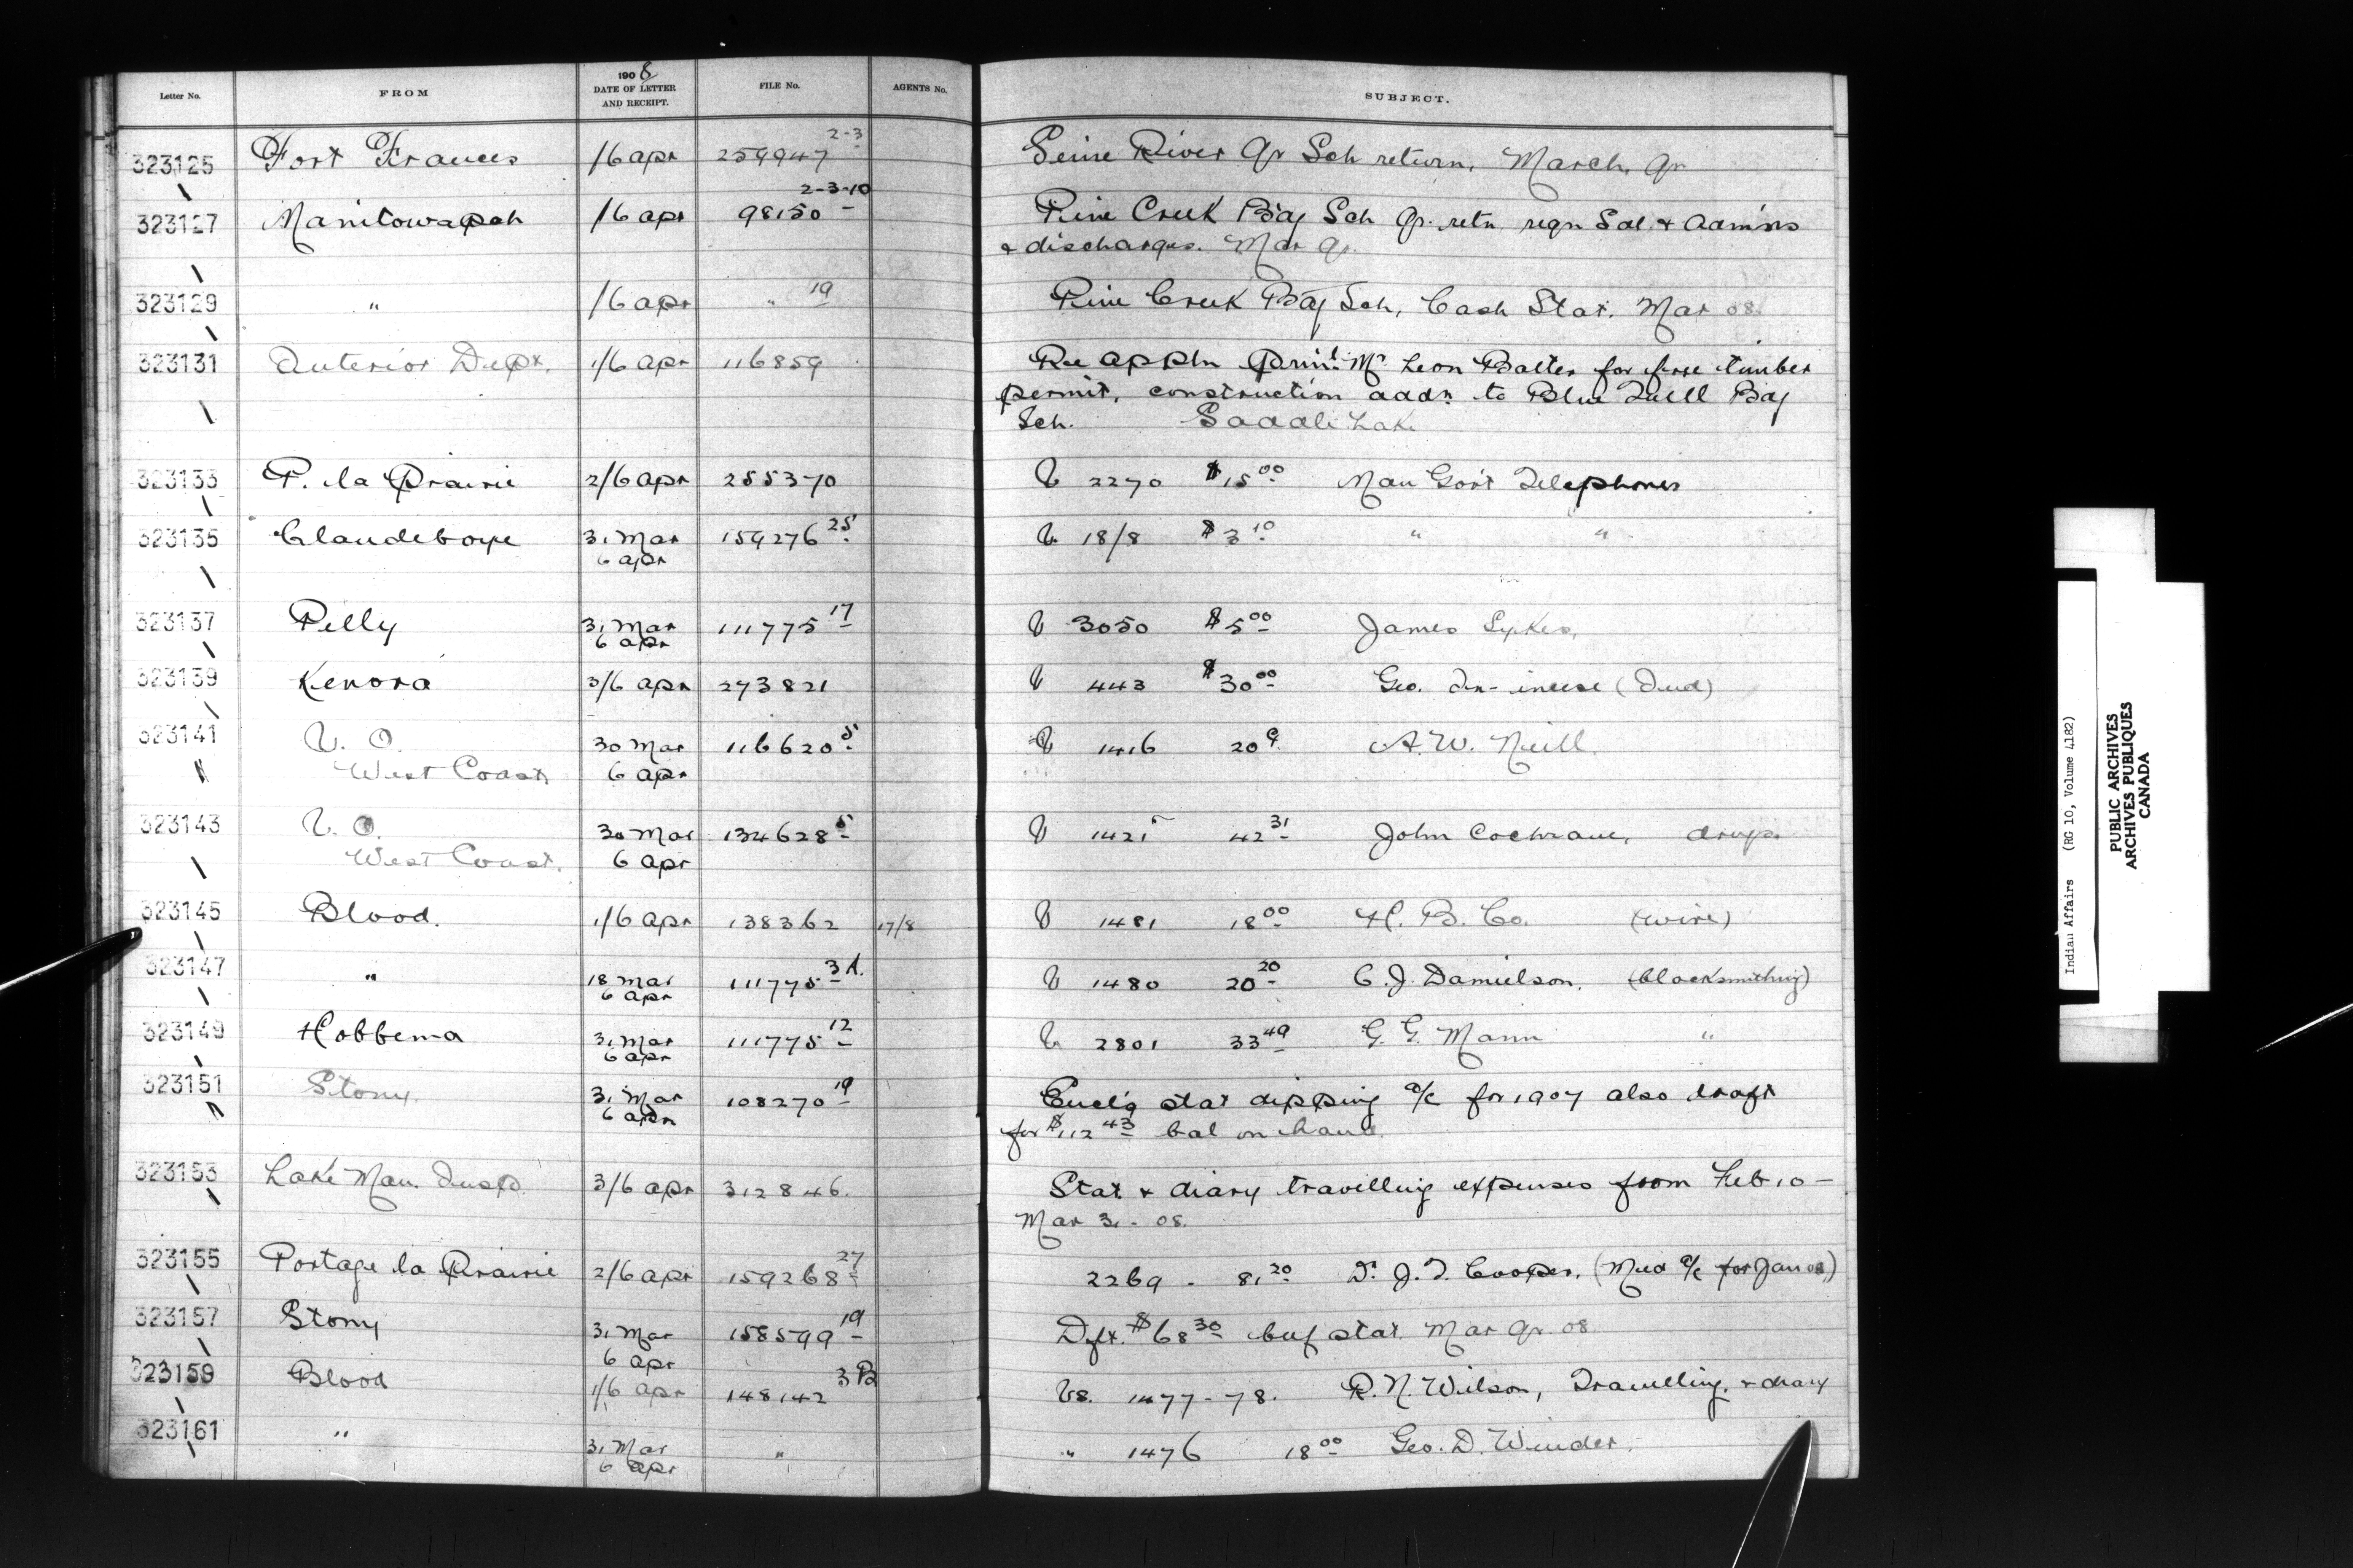 Letter No. FROM 1908 DATE OF LETTER AND RECEIPT. FILE No. AGENTS No. SUBJECT.
323125 Fort Frances 1/6 apr 259947 2-3 Seine River Qr Sch return, March, Qr
323127 Manitowapah 1/6 apr 98150 2-3-10 Pine Creek Bdg Sch Qr. retn reqn Sal. & admins
& discharges. Mar Qr.
323129 " 1/6 apr " 19 Pine Creek Bdg Sch, Cash Stat. Mar 08.
323131 Interior Dept. 1/6 apr 116859 Re appln Prinl. Mr. Leon Balter for free timber
permit, construction addn. to Blue Quill Bdg
Sch. Saddle Lake
323133 P. la Prairie 2/6 apr 255370 V 2270 $15 00 Man Govt Telephones
323135 Clandeboye 31 Mar 159276 25 V 18/8 $3 10 " "
6 apr
323137 Pelly 31 Mar 111775 17 V 3050 $5 00 James Sykes,
6 apr
323139 Kenora 3/6 apr 273821 V 443 $30 00 Geo.
323141 V. O. 30 Mar 116620 5 V 1416 20 A. W. Neill.
West Coast 6 apr
323143 V. O. 30 Mar 134628 5 V 1421 42 31 John Cochrane, drugs.
West Coast. 6 apr
323145 Blood. 1/6 apr 138362 17/8 V 1481 18 00 H. B. Co. (wire)
323147 " 18 Mar 111775 3A. V 1480 20 20 C. J. Danielson, (blacksmithing)
6 apr
323149 Hobbema 31 Mar 111775 12 V 2801 33 49 G. G. Mann "
6 apr
323151 Stony. 31 Mar 108270 19 Encl'g stat dipping a/c for 1907 also draft
6 apr
for $112 43 bal on hand.
323153 Lake Man. Insp. 3/6 apr 312846. Stat & diary travelling expenses from Feb 10 -
Mar 31 - 08.
323155 Portage la Prairie 2/6 apr 159268 27 2269 - 81 20 Dr. J. T. Cooper, (Med a/c for Jan 08)
323157 Stony 31 Mar 158599 19 Dft. $68 30 beef stat. Mar Qr. 08.
6 apr
323159 Blood 1/6 apr 148142 3B Vs. 1477-78. R. N. Wilson, Travelling, & diary
323161 " 31 Mar " " 1476 18 00 Geo. D. Winder.
6 apr
Indian Affairs (RG 10, Volume 4182)
PUBLIC ARCHIVES
ARCHIVES PUBLIQUES
CANADA